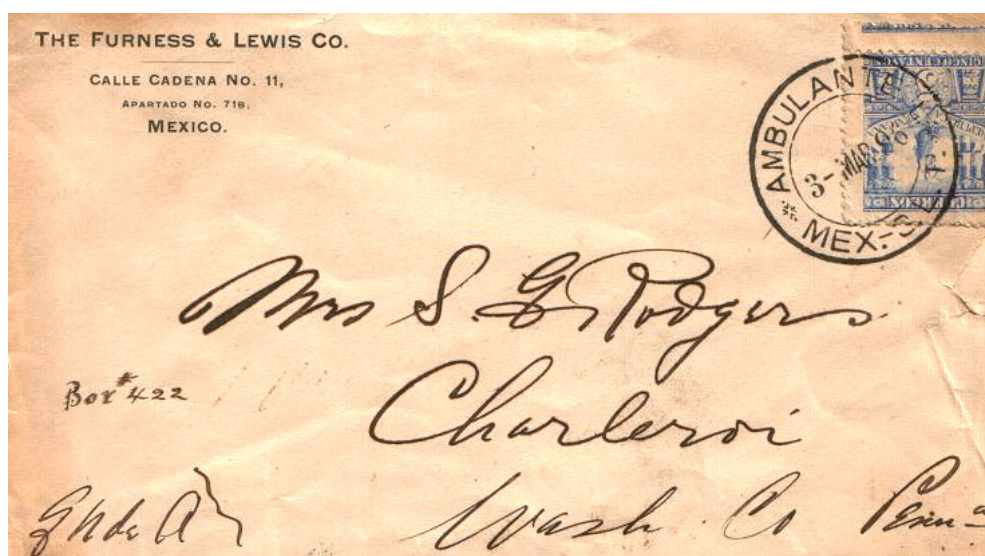 THE FURNESS & LEWIS CO.
CALLE CADENA NO. 11,
APARTADO NO. 71B,
MEXICO.
AMBULANTE
3- MAR 96
MEX.-
Mrs S. G. Rodgers
Box # 422
Charleroi
Wash. Co Penn a